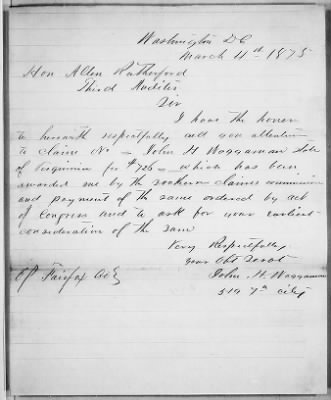 Washington DC
March 4th 1875
Hon Allen Rutherford
Third Auditor
Sir
I have the honor
to herewith respectfully call your attention
to claim No — John H Waggaman State
of Virginia for $726 — which has been
awarded me by the southern claims commission
and payment of the same ordered by act
of Congress and to ask for your earliest
consideration of the same
Very Respectfully
your Obt Servt
John H. Waggaman
519 7th City
Of Fairfax Co